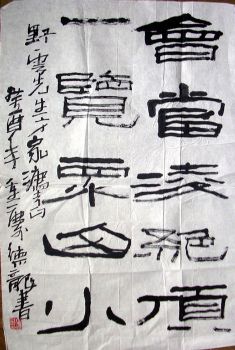 會當淩絕頂
一覽眾山小
野雲先生方家
癸酉年重慶德龍書